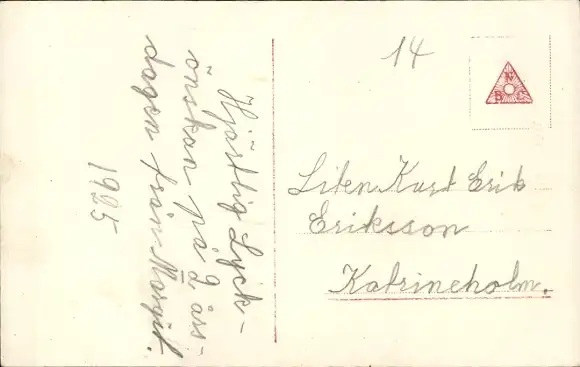 Hjärtlig Lyck-
önskan på 2 års-
dagen från Margit.
1925
14
N
B C
Liten Kurt Erik
Eriksson
Katrineholm.